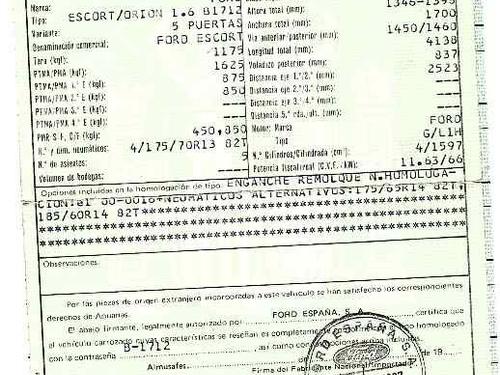 Marca: FORD
Tipo: ESCORT/ORION 1.6 B1712
Variante: 5 PUERTAS
Denominación comercial: FORD ESCORT
Tara (kgf): 1175
PTMA/PMA (kgf): 1625
PTMA/PMA 1.º E (kgf): 875
PTMA/PMA 2.º E (kgf): 850
PTMA/PMA 3.º E (kgf): ---
PTMA/PMA 4.º E (kgf): ---
PMR S.F, C/F (kgf): 450,850
N.º y dim. neumáticos: 4/175/70R13 82T
N.º de asientos: 5
Volumen de bodegas: ---
Altura total (mm): 1346-1395
Anchura total (mm): 1700
Vía anterior/posterior (mm): 1450/1460
Longitud total (mm): 4138
Voladizo posterior (mm): 837
Distancia eje 1.º/2.º (mm): 2523
Distancia eje 2.º/3.º (mm): ---
Distancia eje 3.º/4.º (mm): ---
Distancia 5.ª rda./ult. (mm): ---
Motor: Marca FORD
Tipo G/L1H
N.º Cilindros/Cilindrada (cm³): 4/1597
Potencia fiscal/real (C.V.F./kW): 11.63/66
Opciones incluidas en la homologación de tipo: ENGANCHE REMOLQUE N.HOMOLOGA-
CION:e1 00-0016-NEUMATICOS ALTERNATIVOS:175/65R14 82T,
185/60R14 82T
Observaciones:
Por las piezas de origen extranjero incorporadas a este vehículo se han satisfecho los correspondientes
derechos de Aduanas.
El abajo firmante, legalmente autorizado por FORD ESPAÑA, S. A. certifica que
el vehículo carrozado cuyas características se reseñan es completamente conforme homologado
con la contraseña B-1712, así como
Almusafes, de 19
Firma del Fabricante Nacional/Importador